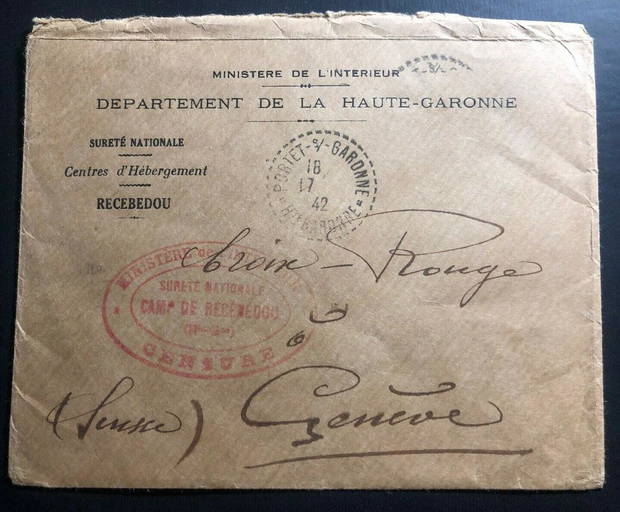 MINISTERE DE L'INTERIEUR
DEPARTEMENT DE LA HAUTE-GARONNE
SURETÉ NATIONALE
Centres d'Hébergement
RECEBEDOU
PORTET-S/-GARONNE
18
17
42
HTE GARONNE
MINISTERE DE L'INTERIEUR
SURETÉ NATIONALE
CAMP DE RECEBEDOU
CENSURE
Croix-Rouge
à
Genève
(Suisse)